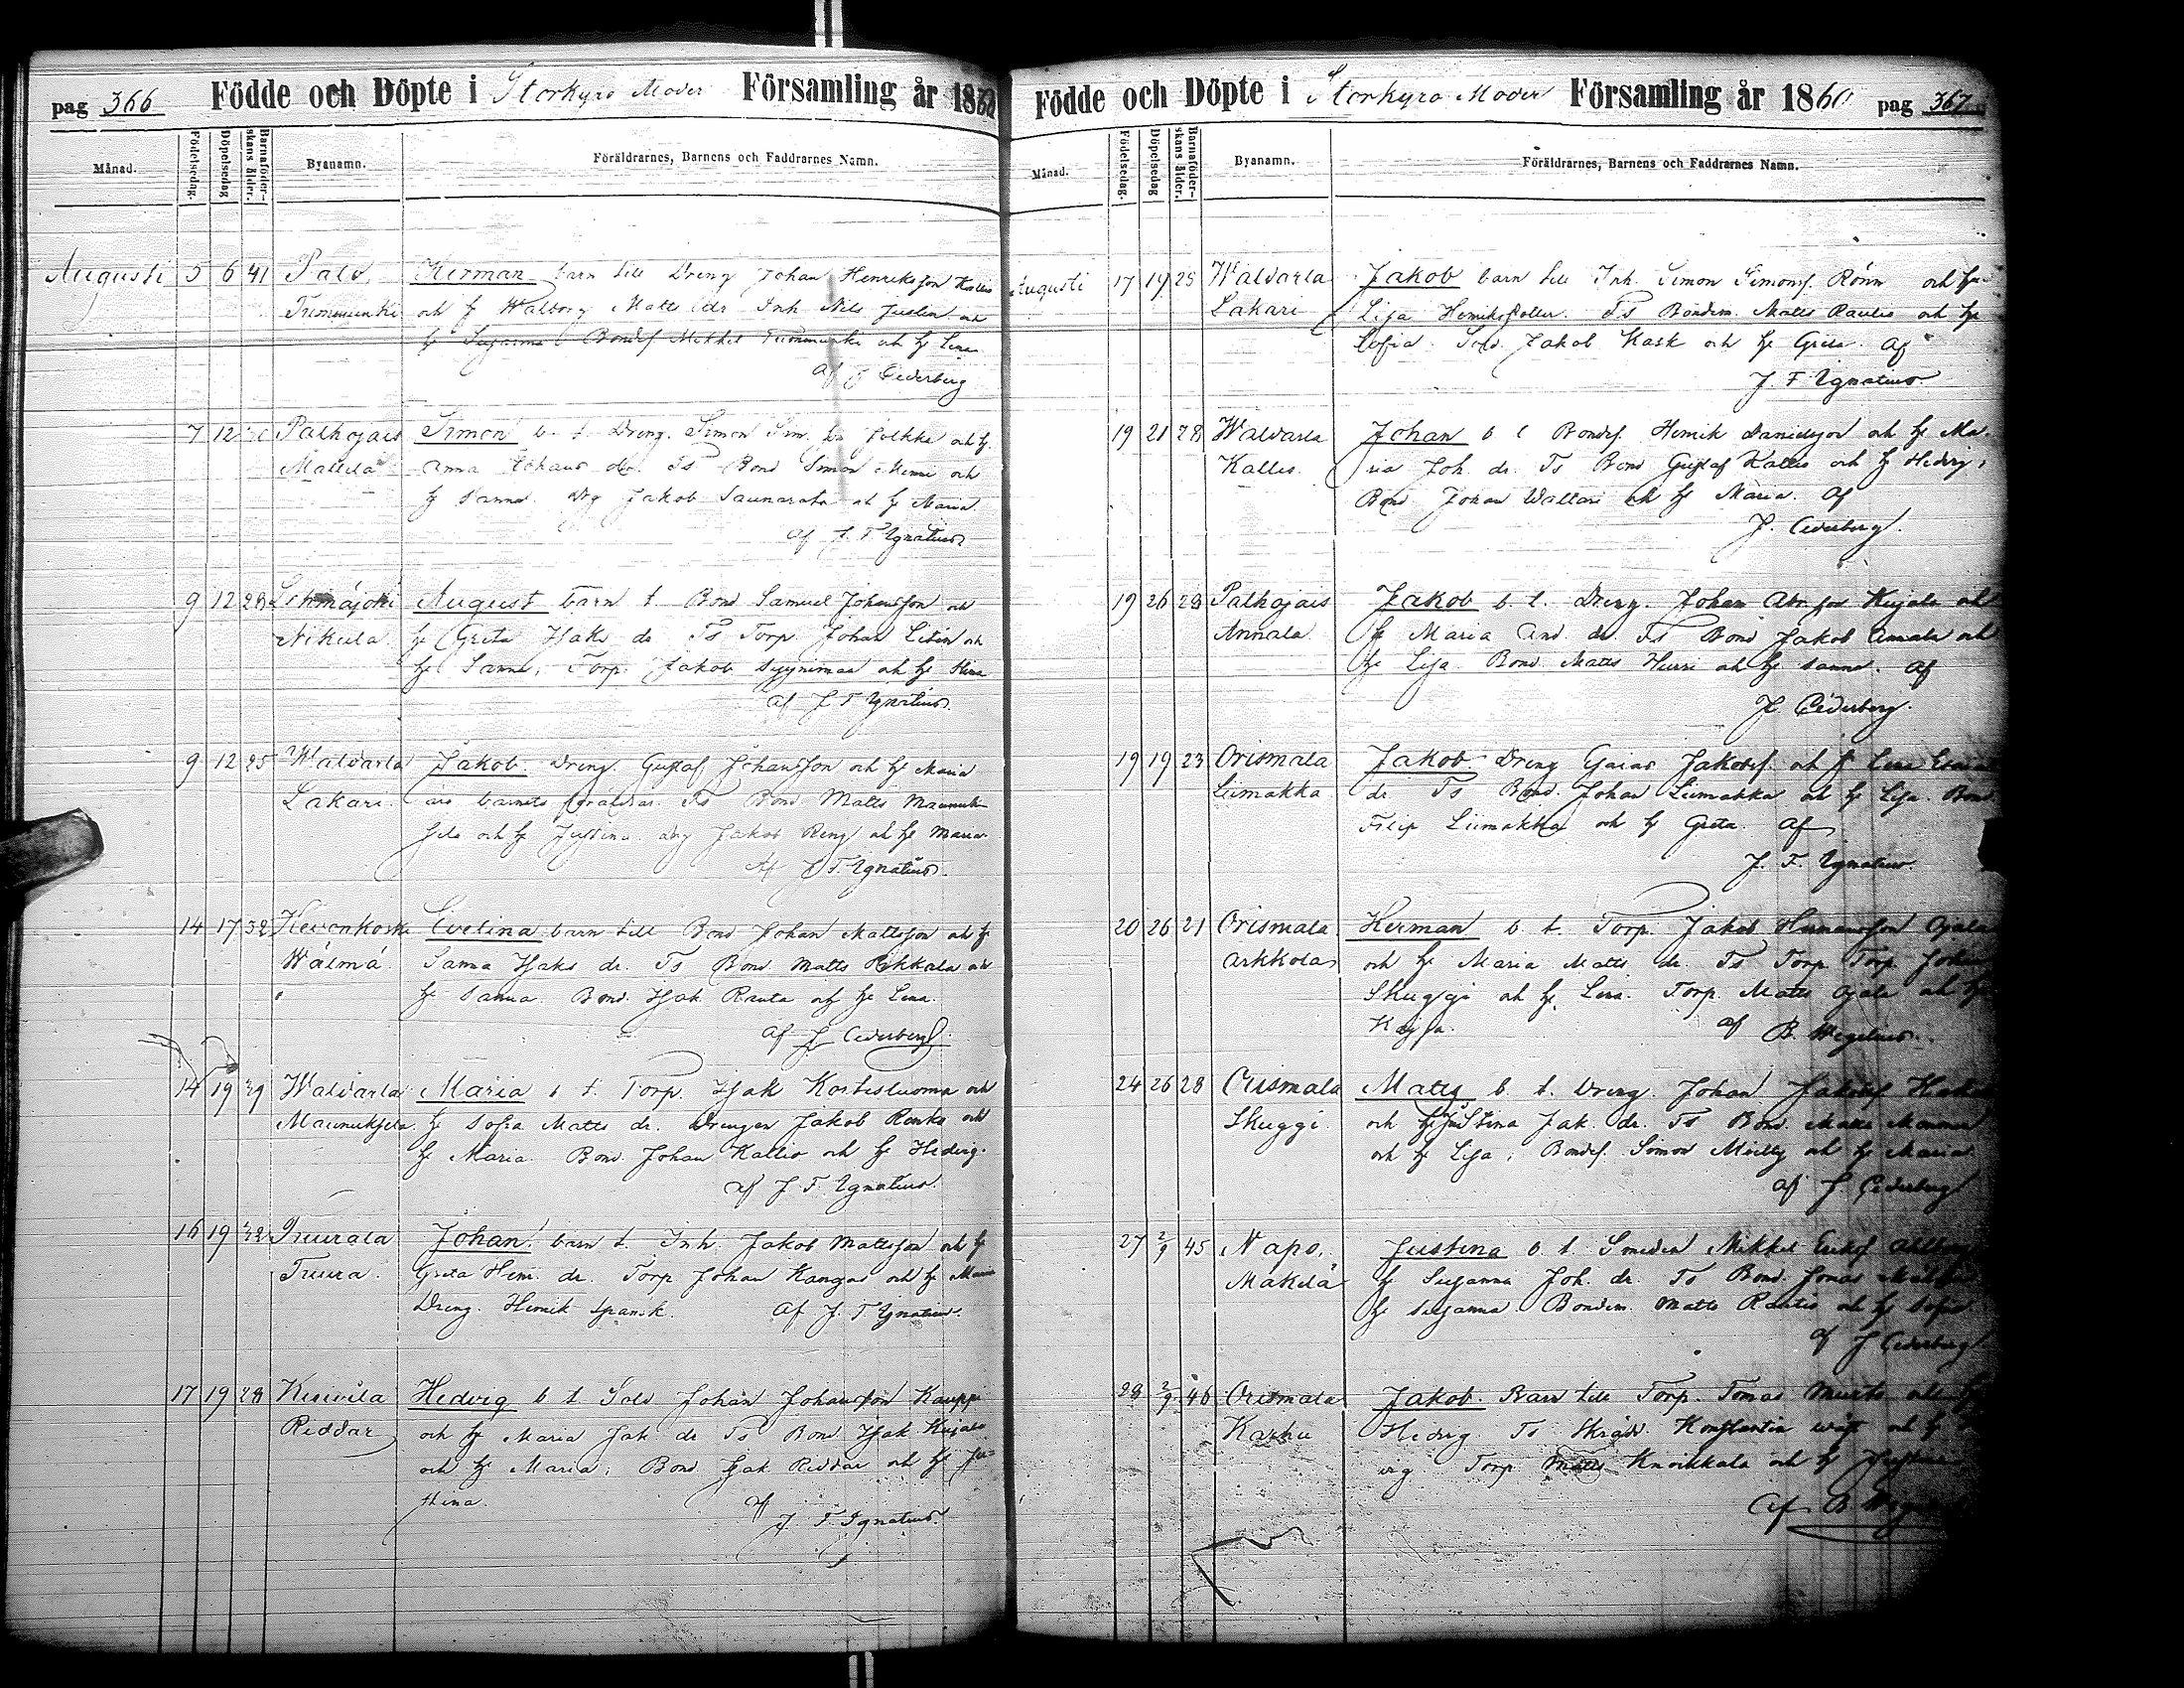 pag 366 Födde och Döpte i Storkyro Moder Församling år 1860
Månad. Födelsedag. Döpelsedag Barnaföderskans ålder. Byanamn. Föräldrarnes, Barnens och Faddrarnes Namn.
Augusti 5 6 41 Palo, Herman barn till Dreng Johan Henriksson Kallio
Trummunki och h Walborg Matts dr Inh Nils Justin och
h Susanna Bondes Mikkel Trummunki och h Lena
af J Cederberg
7 12 Palhojais Simon b. t. Dreng. Simon Sim. son Jolkka och h.
Mattila Anna Johans dr. Ts Bond Simon Menni och
h Sanna. Drg Jakob Saunarata och h Maria
af J. F Ignatius
9 12 28 Lehmäjoki August barn t Bond Samuel Johansson och
Nikula. h Greta Isaks dr Ts Torp. Johan Litin och
h Sanna, Torp. Jakob Syynimaa och h Stina
af J F Ignatius.
9 12 25 Waldarla Jakob. Dreng. Gustaf Johansson och h Maria
Lakari äro barnets föräldrar. Ts Bond Matts Maunuk-
sela och h Justina. Drg Jakob Reng och h Maria
Af J F. Ignatius.
14 17 32 Kevonkoski Evelina barn till Bond Johan Mattsson och h
Wälmä. Sanna Isaks dr. Ts Bond Matts Pikkala och
h Sanna. Bond. Isak Ranta och h Lena.
af J Cederberg.
14 19 39 Waldarla Maria b t. Torp. Isak Kortesluoma och
Maunuksela. h Sofia Matts dr. Drengen Jakob Ranka och
h Maria. Bond Johan Kallio och h Hedvig.
af J F. Ignatius.
16 19 32 Tuurala Johan. barn t. Inh. Jakob Mattsson och h
Tuura. Greta Henr. dr. Torp Johan Kangas och h Maria
Dreng. Henrik Spansk. af J. F Ignatius.
17 19 28 Kuivila Hedvig b t Sold Johan Johansson Kauppi
Riddar och h Maria Jak dr Ts Bond Isak Kujala
och h Maria; Bond Isak Riddar och h Ju-
stina. af
J. F. Ignatius.
Födde och Döpte i Storkyro Moder Församling år 1860 pag 367
Månad. Födelsedag. Döpelsedag Barnaföderskans ålder. Byanamn. Föräldrarnes, Barnens och Faddrarnes Namn.
Augusti 17 19 25 Waldarla Jakob barn till Inh. Simon Simons. Rönn och h
Lakari Lisa Henriksdotter. Ts Bondem. Matts Rautio och h
Sofia. Sold. Jakob Kask och h Greta. af
J. F Ignatius.
19 21 28 Waldarla Johan b t Bondes. Henrik Danielsson och h Ma-
Kallio. ria Joh. dr. Ts Bond Gustaf Kallio och h Hedvig,
Bond Johan Wallari och h Maria. af
J. Cederberg.
19 26 28 Palhojais Jakob b. t. Dreng. Johan Abr. son Kujala och
Annala. h Maria And. dr. Ts Bond Jakob Annala och
h Lisa. Bond. Matts Hurri och h Sanna. af
J. Cederberg.
19 19 23 Orismala Jakob. Dreng Esaias Jakobss. och h Lena Esaias
Liimakka dr Ts Bond. Johan Liimakka och h Lisa. Bond.
Filip Liimakka och h Greta. af
J. F. Ignatius.
20 26 21 Orismala Herman b. t. Torp. Jakob Hermansson Ojala
Arkkola och h Maria Matts dr. Ts Torp Torp Johan
Skuggi och h Lena. Torp. Matts Ojala och h
Kajsa. af B. Wegelius.
24 26 28 Orismala Matts b. t. Dreng. Johan Jakobss
Skuggi. och h Justina Jak. dr. Ts Bond. Matts
och h Lisa; Bondes. Simon och h Maria.
af J Cederberg
27 2/9 45 Napo, Justina b. t. Smeden Mikkel Erikss Ahlberg
Mäkelä h Susanna Joh. dr. Ts Bond. Jonas
h Susanna Bondem. Matts Rautio och h Sofia.
af J Cederberg
28 2/9 46 Orismala Jakob. Barn till Torp. Tomas Murto och h
Karhu Hedvig. Ts Skrädd. Konstantin och h
vig. Torp Matts Knuikkala och h
Af B.